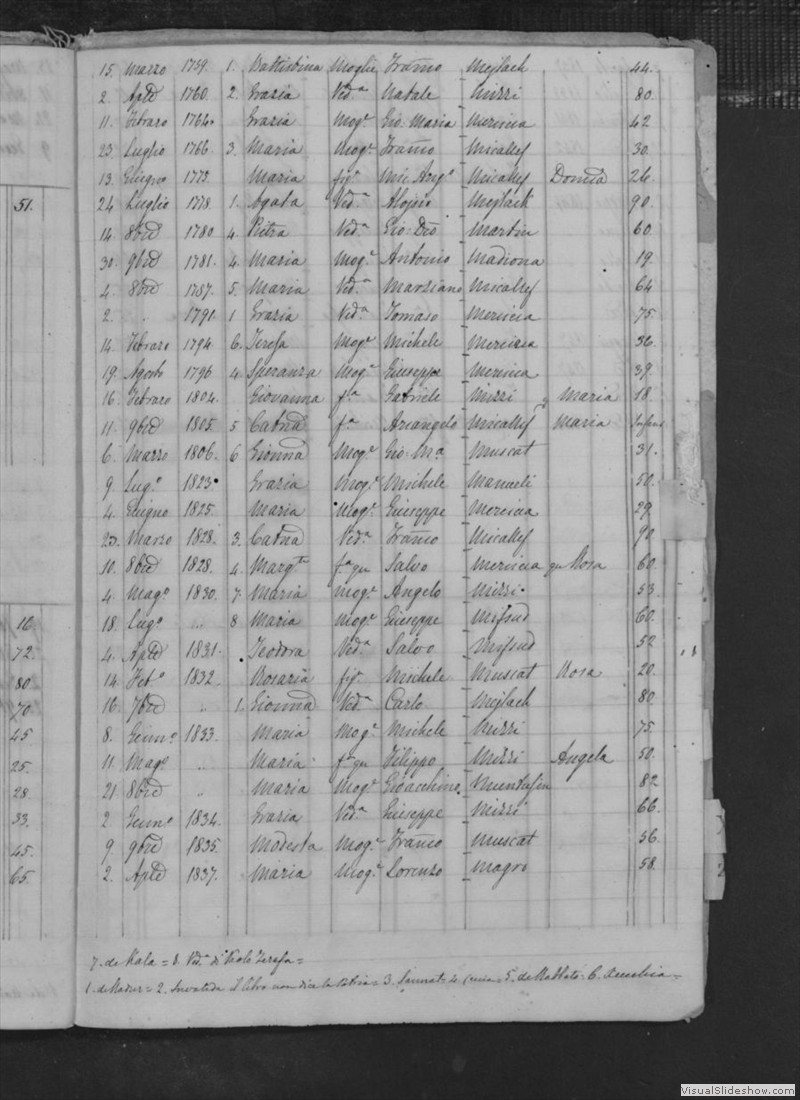 15. Marzo 1759. 1. Battistina Moglie Franco Mejlach 44.
2. Aple 1760. 2. Grazia Veda Natale Mizzi 80.
11. Febraro 1764. Grazia Moge Gio: Maria Mercieca 42
23 Luglio 1766 3. Maria Moge Franco Micallef 30.
13. Giugno Maria figa Mic: Anglo Micallef 26.
51.
24 Luglio 1778. 1. Agata Veda Alojsio Mejlach 90.
14. 8bre 1780. 4. Pietra Veda Gio: Martin 60.
30. 9bre 1781. 4. Maria Moge Antonio Madiona 19.
4. 8bre 1787. 5. Maria Veda Marziano Micallef 64
2. " 1791. 1 Grazia Veda Tomaso Mercieca 75.
14. Febraro 1794. 6. Teresa Moge Michele Mercieca 36.
19. Agosto 1796. 4. Speranza Moge Giuseppe Mercieca 39.
16. Febraro 1804. Giovanna fa Gabriele Mizzi " Maria 18.
11. 9bre 1805. 5 Catna fa Arcangelo Micallef Maria
6. Marzo 1806. 6 Gionna Moge Gio: Ma Muscat 31.
9. Lugo 1823. Grazia Moge Michele Manueli 50.
4. Giugno 1825. Maria Moge Giuseppe Mercieca 29.
23. Marzo 1828. 3. Catna Veda Franco Micallef 90.
10. 8bre 1828. 4. Margta fa qu Salvo Mercieca qu Rosa 60.
4. Mago 1830. 7. Maria Moge Angelo Mizzi. 53.
16.
18. Lugo " 8 Maria Moge Giuseppe Mifsud 60.
72.
4. Aple 1831. Teodora Veda Salvo Mifsud 52
80.
14. Febo 1832. Rosaria figa Michele Muscat Rosa 20.
70.
16. 7bre " 1. Gionna Veda Carlo Mejlach 80.
45.
8. Genno 1833. Maria Moge Michele Mizzi 75.
25.
11. Mago " Maria fa qu Filippo Mizzi Angela 50.
28.
21. 8bre " Maria Moge Gioacchino 82
33.
2. Genno 1834. Grazia Veda Giuseppe Mizzi 66.
45.
9. 9bre 1835. Modesta Moge Franco Muscat 56.
65.
2. Aple 1837. Maria Moge Lorenzo Magro 58.
7. da Kala = 8. Veda di
1. da Nadur = 2. il libro non dice la Patria = 3. Sannat = 5. da Rabbato. 6.
VisualSlideshow.com